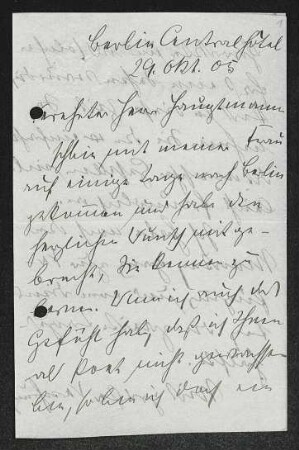 Berlin Centralhôtel
29. Okt. 05
Verehrter Herr Hauptmann
ich bin mit meiner Frau
auf einige Tage nach Berlin
gekommen und habe den
herzlichen Wunsch mitge-
bracht, Sie kennen zu
lernen. Wenn ich auch das
Gefühl hab, daß ich Ihnen
als Poet nicht gewachsen
bin, so bin ich doch ein